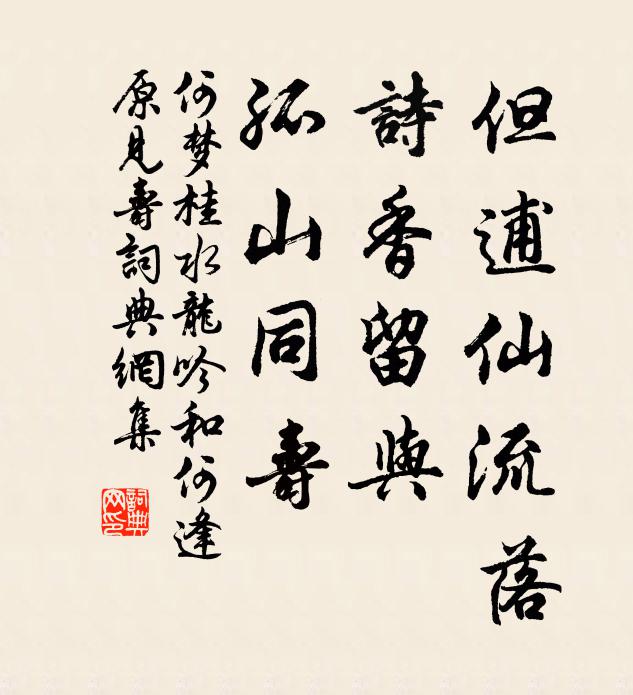 但逋仙流落
詩香留與
孤山同壽
何梦桂水龍吟和何逢
原見壽詞典網集
詞典網印